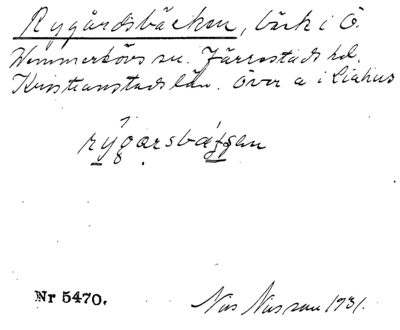 Rygårdsbäcken, bäck i Ö.
Vemmerlövs sn. Järrestads hd.
Kristianstads län. Över a i
rýgarsbáʃʃen
Nr 5470.
Nils Nilsson 1931.